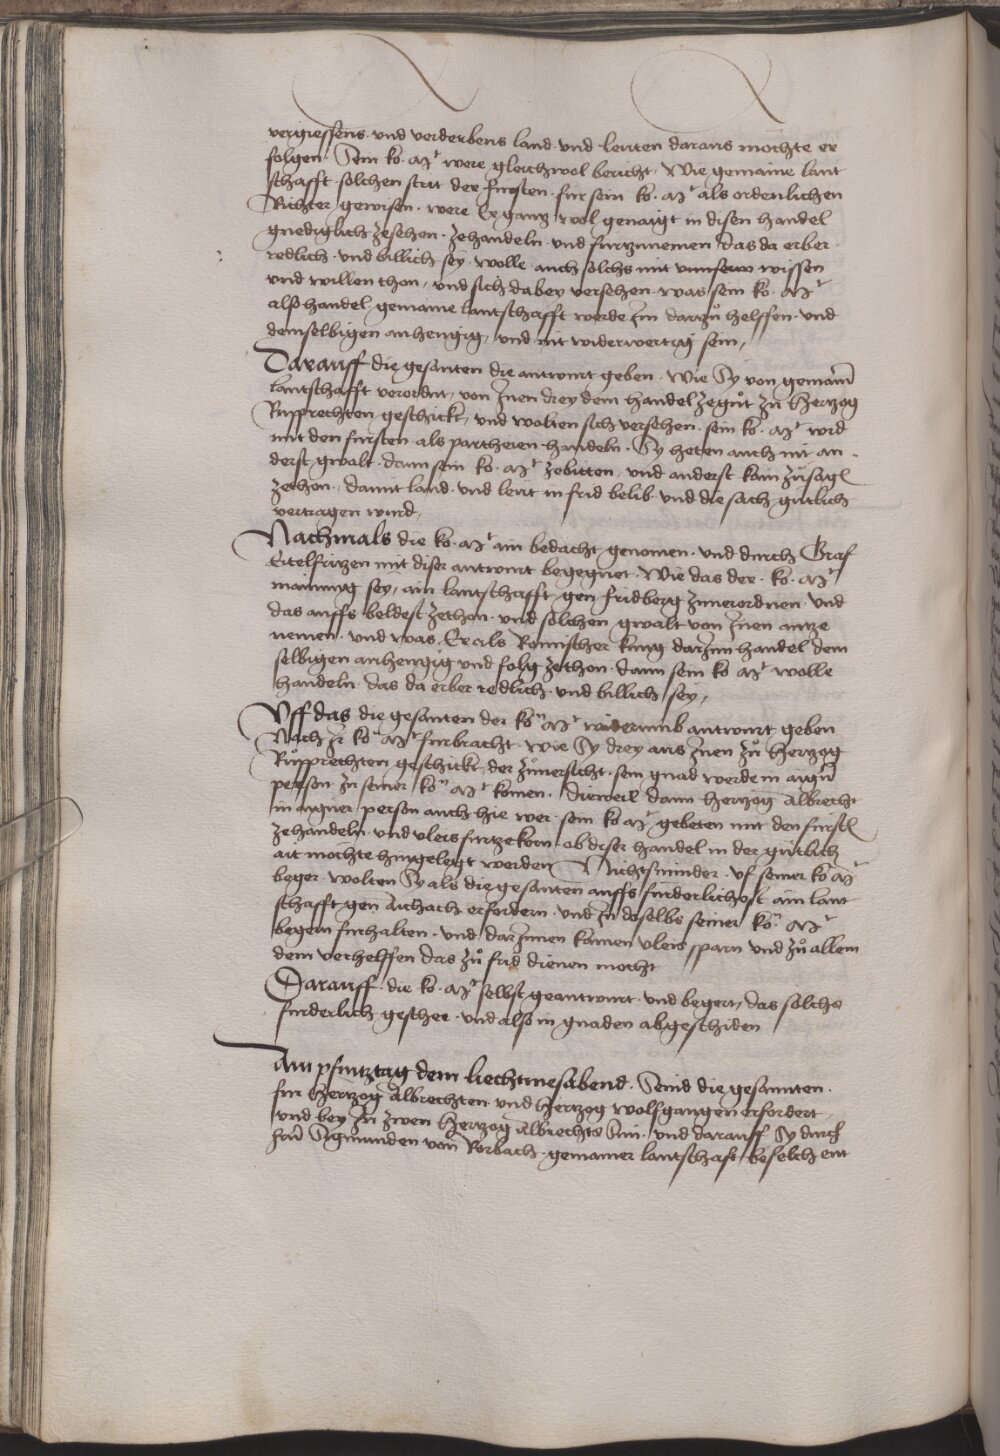 vergiessens · und verderbens land · und leuten daraus möchte er
folgen · Sein ko. Mt were gleichwol bericht, Wie gemaine lant
schafft solchen strit der fürsten · für sein ko. Mt als ordenlichen
Richter gewisen · were Er gantz wol genaigt in disen handel
gnediglich zesehen · zehandeln · und furtzunemen das da erber ·
redlich · und billich sey · wolle auch solchs mit unnserm wissen
und willen thon, und sich dabey versehen · was sein ko. Mt
also handel, gemaine lantschafft werde Im dartzů helffen · und
demselbigen anhengig, und nit widerwertig sein,
Darauff die gesanten die antwurt geben · Wie Sy von gemainer
lantschafft verordnt, von Inen drey dem handel zegůt zů Hertzog
Rupprechten geschickt, und wolten sich versehen · sein ko. Mt wird
mit den fürsten als partheien handeln · Sy heten auch nit an ·
derst gwalt · dann sein ko. Mt zebitten, und anderst kain zůsag
zethon · damit land · und leut in frid belib · und die sach gütlich
vertragen wurd,
Nachmals die ko. Mt ain bedacht genomen · und durch Graf
Eitelfritzen mit diser antwurt begegnet · Wie das der · ko. Mt
mainung sey, ain lantschafft gen fridberg zuuerordnen · und
das auffs beldest zethon · und solchen gwalt von Inen antze
nemen · und was Er als Romischer kunig darinn handel dem
selbigen anhengig und folg zethon · dann sein ko Mt wolle
handeln · das da erber redlich · und billich sey,
Uff das die gesanten der kon Mt widerumb antwurt geben
Nach Ir kon Mt furbracht · wie Sy drey aus Inen zů Hertzog
Růpprechten geschickt, der zůuersicht · sein gnad werde in aigner
person zu seiner kon Mt komen · Dieweil dann Hertzog Albrecht
in aigner person auch hie wer · sein ko Mt gebeten mit den fürsten
zehandeln · und vleis furtzekern · ob diser handel in der gütlich
ait möchte hingelegt werden Nichtsminder · Uf seiner ko Mt
beger · wolten Sy als die gesanten auffs fürderlichost ain lant
schafft gen Aichach erfordern · und In daselbs seiner kon Mt
begern furhalten · und darInnen kainen vleis sparn und zů allem
dem verhelffen das zů frid dienen mocht
Darauff · die ko. Mt selbst geantwurt · und begert, das solchs
furderlich geschee · und also in gnaden abgeschiden
Am pfintztag dem liechtmesabend · Seind die gesannten ·
fur Hertzog Albrechten und Hertzog wolfgangen erfordert,
und bey In zwen Hertzog Albrechts Sün · und darauff Sy durch
herrn Sigmunden von Rorbach · gemainer lantschaft, befelch ent